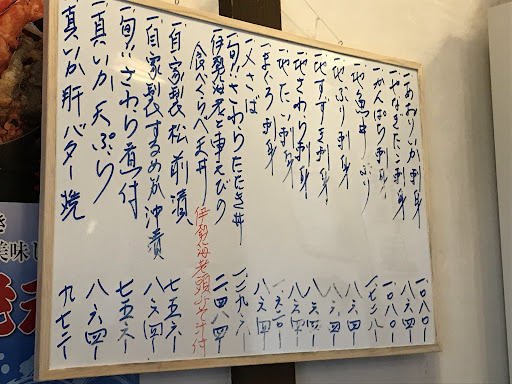 一あおりいか刺身 一、〇八〇
一やなぎだこ刺身 一、〇八〇
一かんぱち刺身 一、〇八〇
一地魚丼ぶり 一、七二八
一地ぶり刺身 八六四
一地すずき刺身 八六四
一地さわら刺身 八六四
一地たい刺身 八六四
一まぐろ刺身
一〆さば 八六四
一旬ださわらたたき丼 一、二九六
一伊勢海老と車えびの
食べくらべ天丼 伊勢海老頭みそ汁付 二四八四
一自家製松前漬 七五六
一自家製するめいか沖漬 八六四
一旬ださわら煮付 七五六
一真いか天ぷら 八六四
一真いか肝バター焼 九七二
美味し